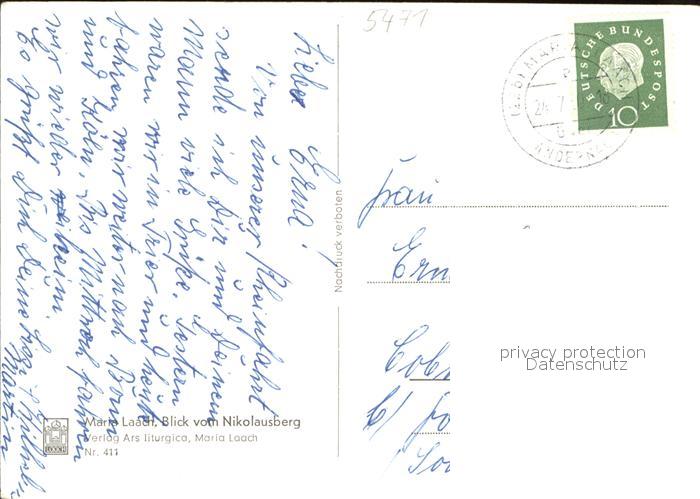 5471
Liebe Erna!
Von unserer Rheinfahrt
sende ich Dir und Deinem
Mann viele Grüße. Gestern
waren wir in Trier und heute
fahren wir weiter nach Bonn
und Köln. Bis Mittwoch fahren
wir wieder heim.
Es grüßt Dich Deine
Martin
Nachdruck verboten
Maria Laach, Blick vom Nikolausberg
Verlag Ars liturgica, Maria Laach
Nr. 411
DEUTSCHE BUNDESPOST
10
MARIA
ANDERNACH
Frau
Ern
Cob
privacy protection
Datenschutz